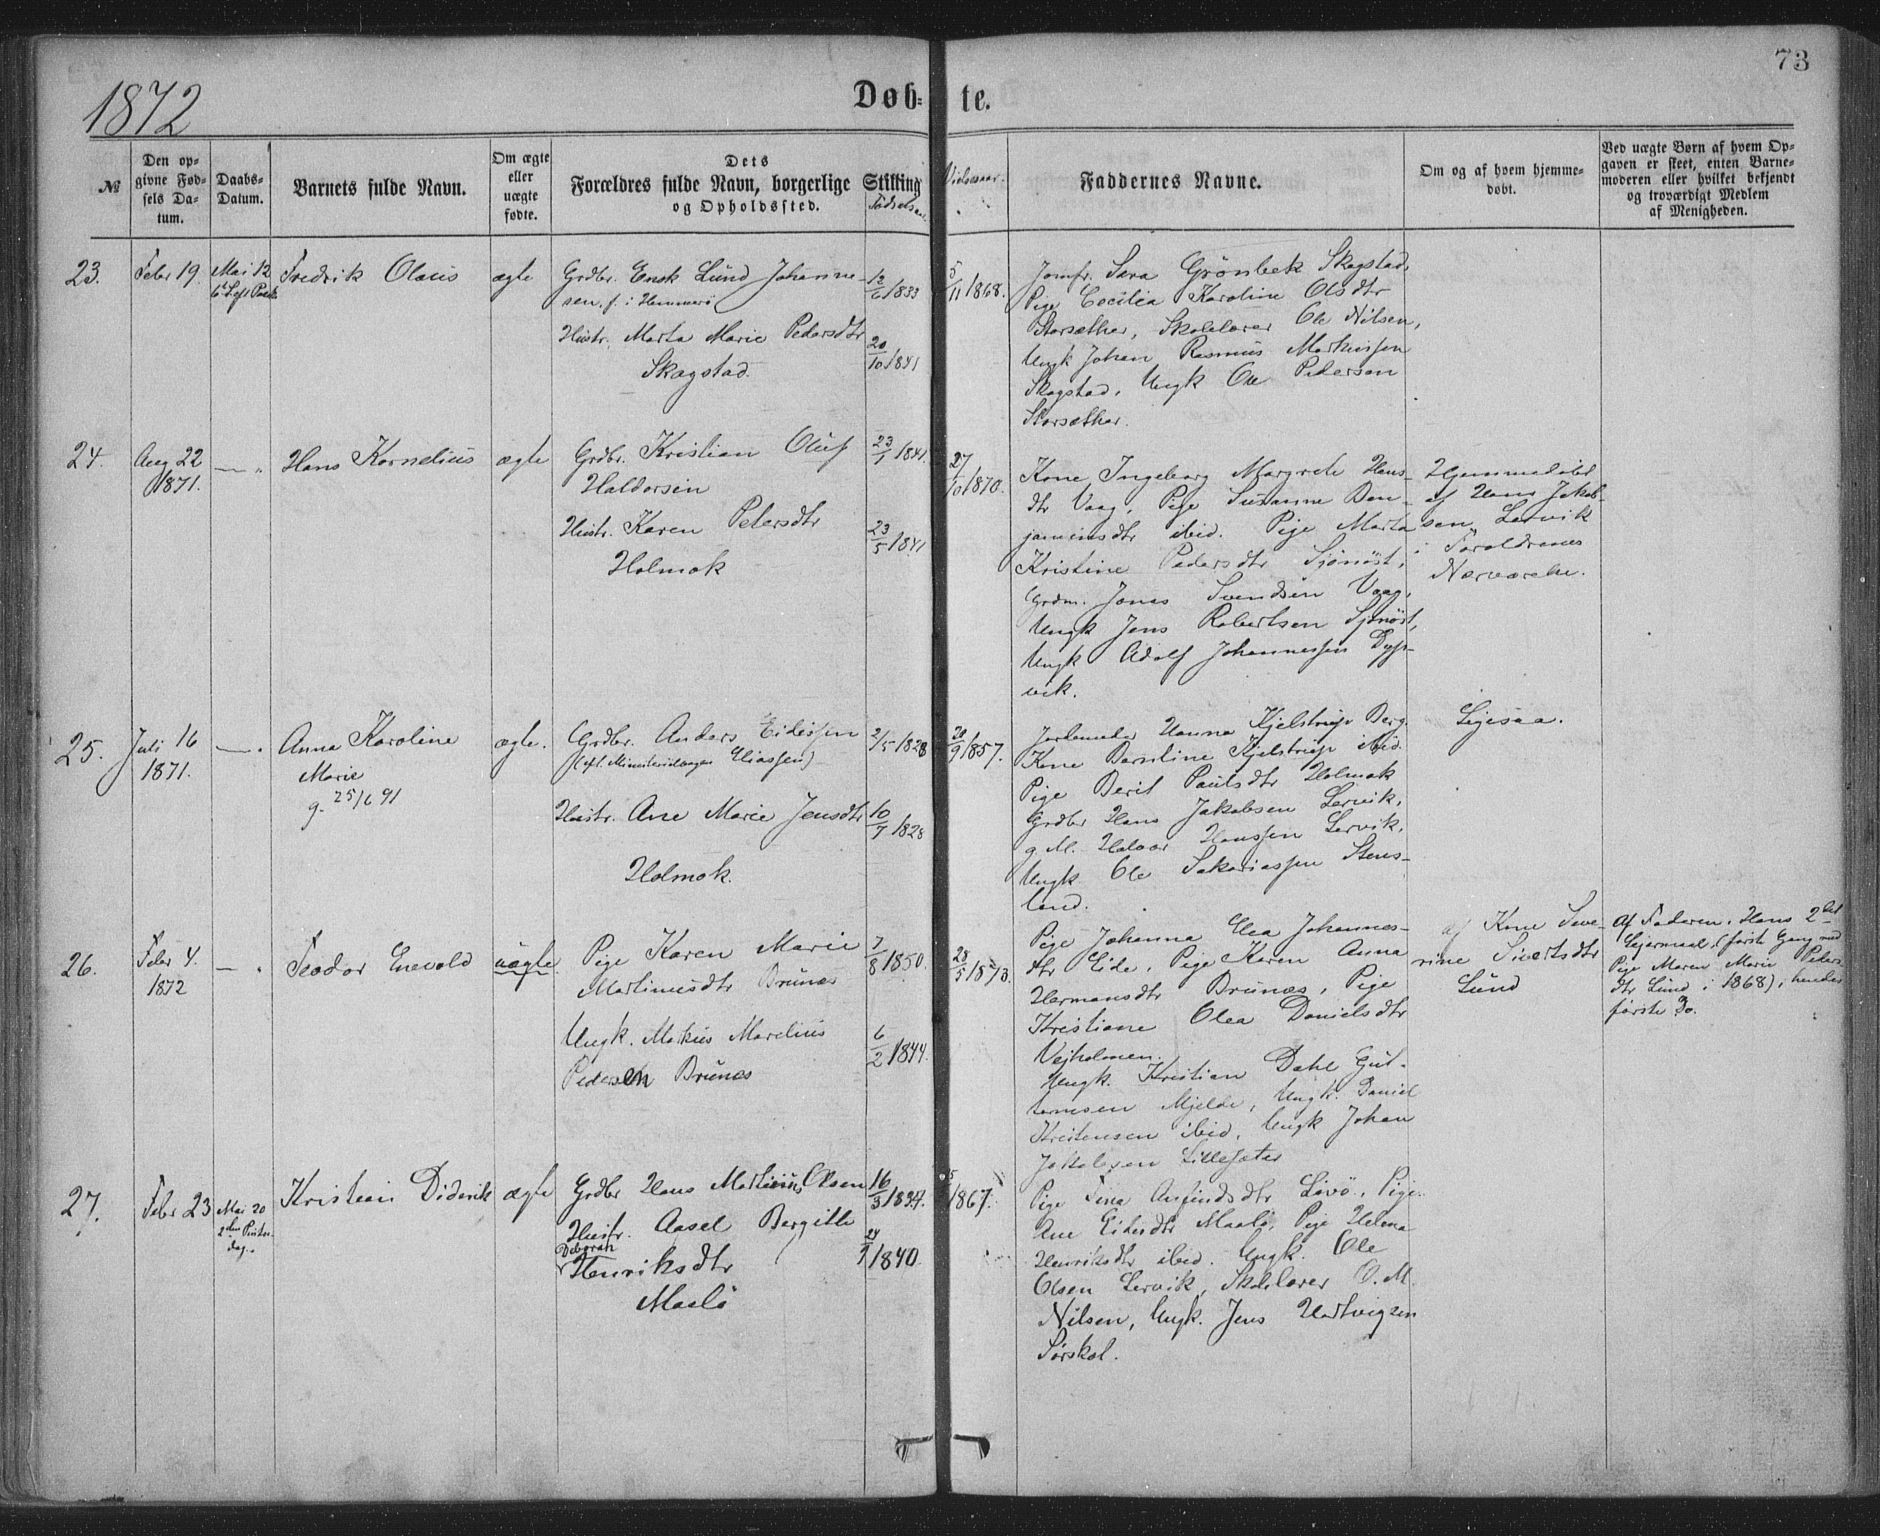 73
1872
Døb- te.
№
Den op-
givne Fød-
sels Da-
tum.
Daabs-
Datum.
Barnets fulde Navn.
Om ægte
eller
uægte
fødte.
Dets
Forældres fulde Navn, borgerlige Stilling
og Opholdssted.
Fødselsaar
Vielsesaar
Faddernes Navne.
Om og af hvem hjemme-
døbt.
Ved uægte Børn af hvem Op-
gaven er skeet, enten Barne-
moderen eller hvilket bekjendt
og troværdigt Medlem
af Menigheden.
23.
Febr 19.
Mai 12
Fredrik Olaus
ægte
Grdbr. Enok Lund Johanne-
sen, f. i Hammerö
Hustr. Marta Marie Pedersdtr
Skagstad.
12/6 1833
20/10 1841
5/11 1868.
Jomfr. Sara Grönbek Skagstad,
Pige Cecilia Karoline Olsdtr
Storsæther, Skolelærer Ole Nilsen,
Ungk Johan Rasmus Markussen
Skagstad, Ungk Ole Pedersen
Storsæther.
24.
Aug 22
1871.
— "
Hans Kornelius
ægte
Grdbr. Kristian Oluf
Haldorsen
Hustr. Karen Petersdtr
Holmok
23/1 1841.
23/5 1841
27/10 1870.
Kone Ingeborg Margrete Hans-
dtr Vaag, Pige Susanne Ben-
jaminsdtr ibid. Pige Marta
Kristine Pedersdtr Sjönöst,
Grdm. Jonas Svendsen Vaag,
Ungk Jens Robertsen Sjönöst,
Ungk Adolf Johannessen Dyp-
vik.
Hjemmedöbt
af Hans Jakob-
sen Lervik
i Foreldrenes
Nærværelse.
25.
Juli 16
1871.
— "
Anna Karoline
Marie
g. 25/6 91
ægte.
Grdbr. Anders Eidissen
Eliassen)
Hustr. Ane Marie Jensdtr
Holmok.
2/5 1828
10/7 1828
20/9 1857.
Jordemoder Hanna Kjelstrup Berg.
Kone Berntine Kjelstrup ibid.
Pige Berit Paulsdtr Holmok
Grdbr Hans Jakobsen Lervik,
g. M. Halvor Hanssen Lervik,
Ungk Ole Sakariassen Stens-
land.
Ligesaa.
26.
Febr 4.
1872
— "
Teodor Enevold
uægte
Pige Karen Marie
Martinusdtr Brunes
Ungk. Markus Marelius
Pedersen Brunes
7/8 1850.
6/2 1844.
28/5 1873.
Pige Johanna Elea Johannes-
dtr Eide, Pige Karen Anna
Hermansdtr Brunes, Pige
Kristiane Olea Danielsdtr
Vejholmen.
Ungk. Kristian Dahl Gut-
tormsen Mjelde, Ungk. Daniel
Kristensen ibid, Ungk Johan
Jakobsen Lillesæter
af Kone Seve-
rine Sivertsdtr
Lund
Af Faderen, Hans 2det
Leiermaal, (förste Gang med
Pige Maren Marie Peders-
dtr Lund i 1868), hendes
förste Do.
27.
Febr 23
Mai 20
2den Pintse-
dag.
Kristian Diderik
ægte
Grdbr Hans Martinus Olsen
Hustr. Aasel Bergitte
Deborah
Henriksdtr
Maalö
16/3 1837.
24/9 1840.
1867.
Pige Tina Arfindsdtr Lövö, Pige
Ane Eidisdtr Maalö, Pige Helena
Henriksdtr ibid. Ungk. Ole
Olsen Lervik, Skolelærer O. M.
Nilsen, Ungk. Jens Hartvigsen
Sörskot.